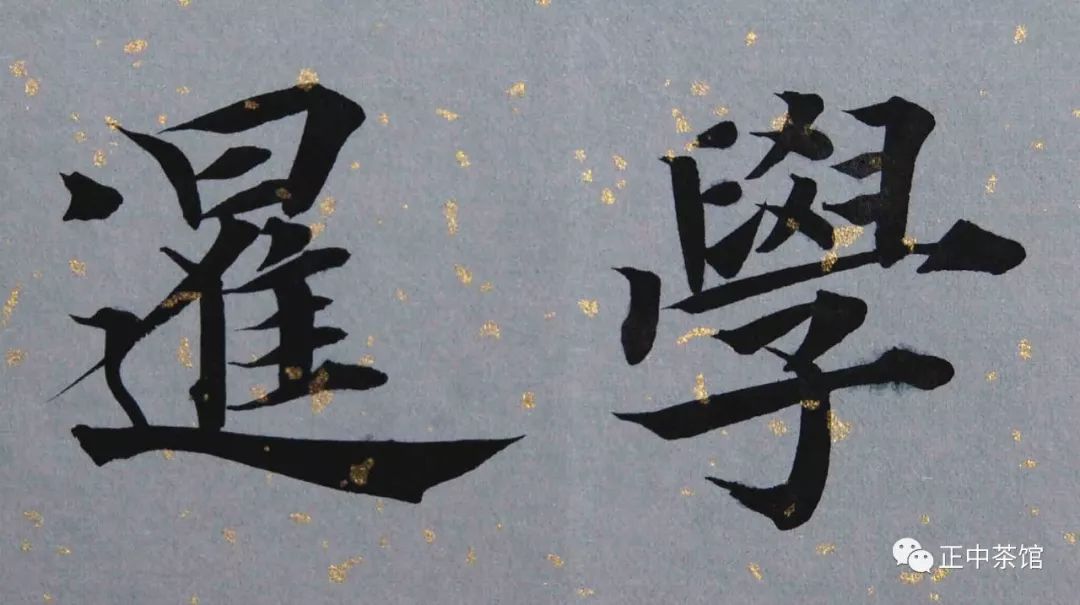 學暹
正中茶馆